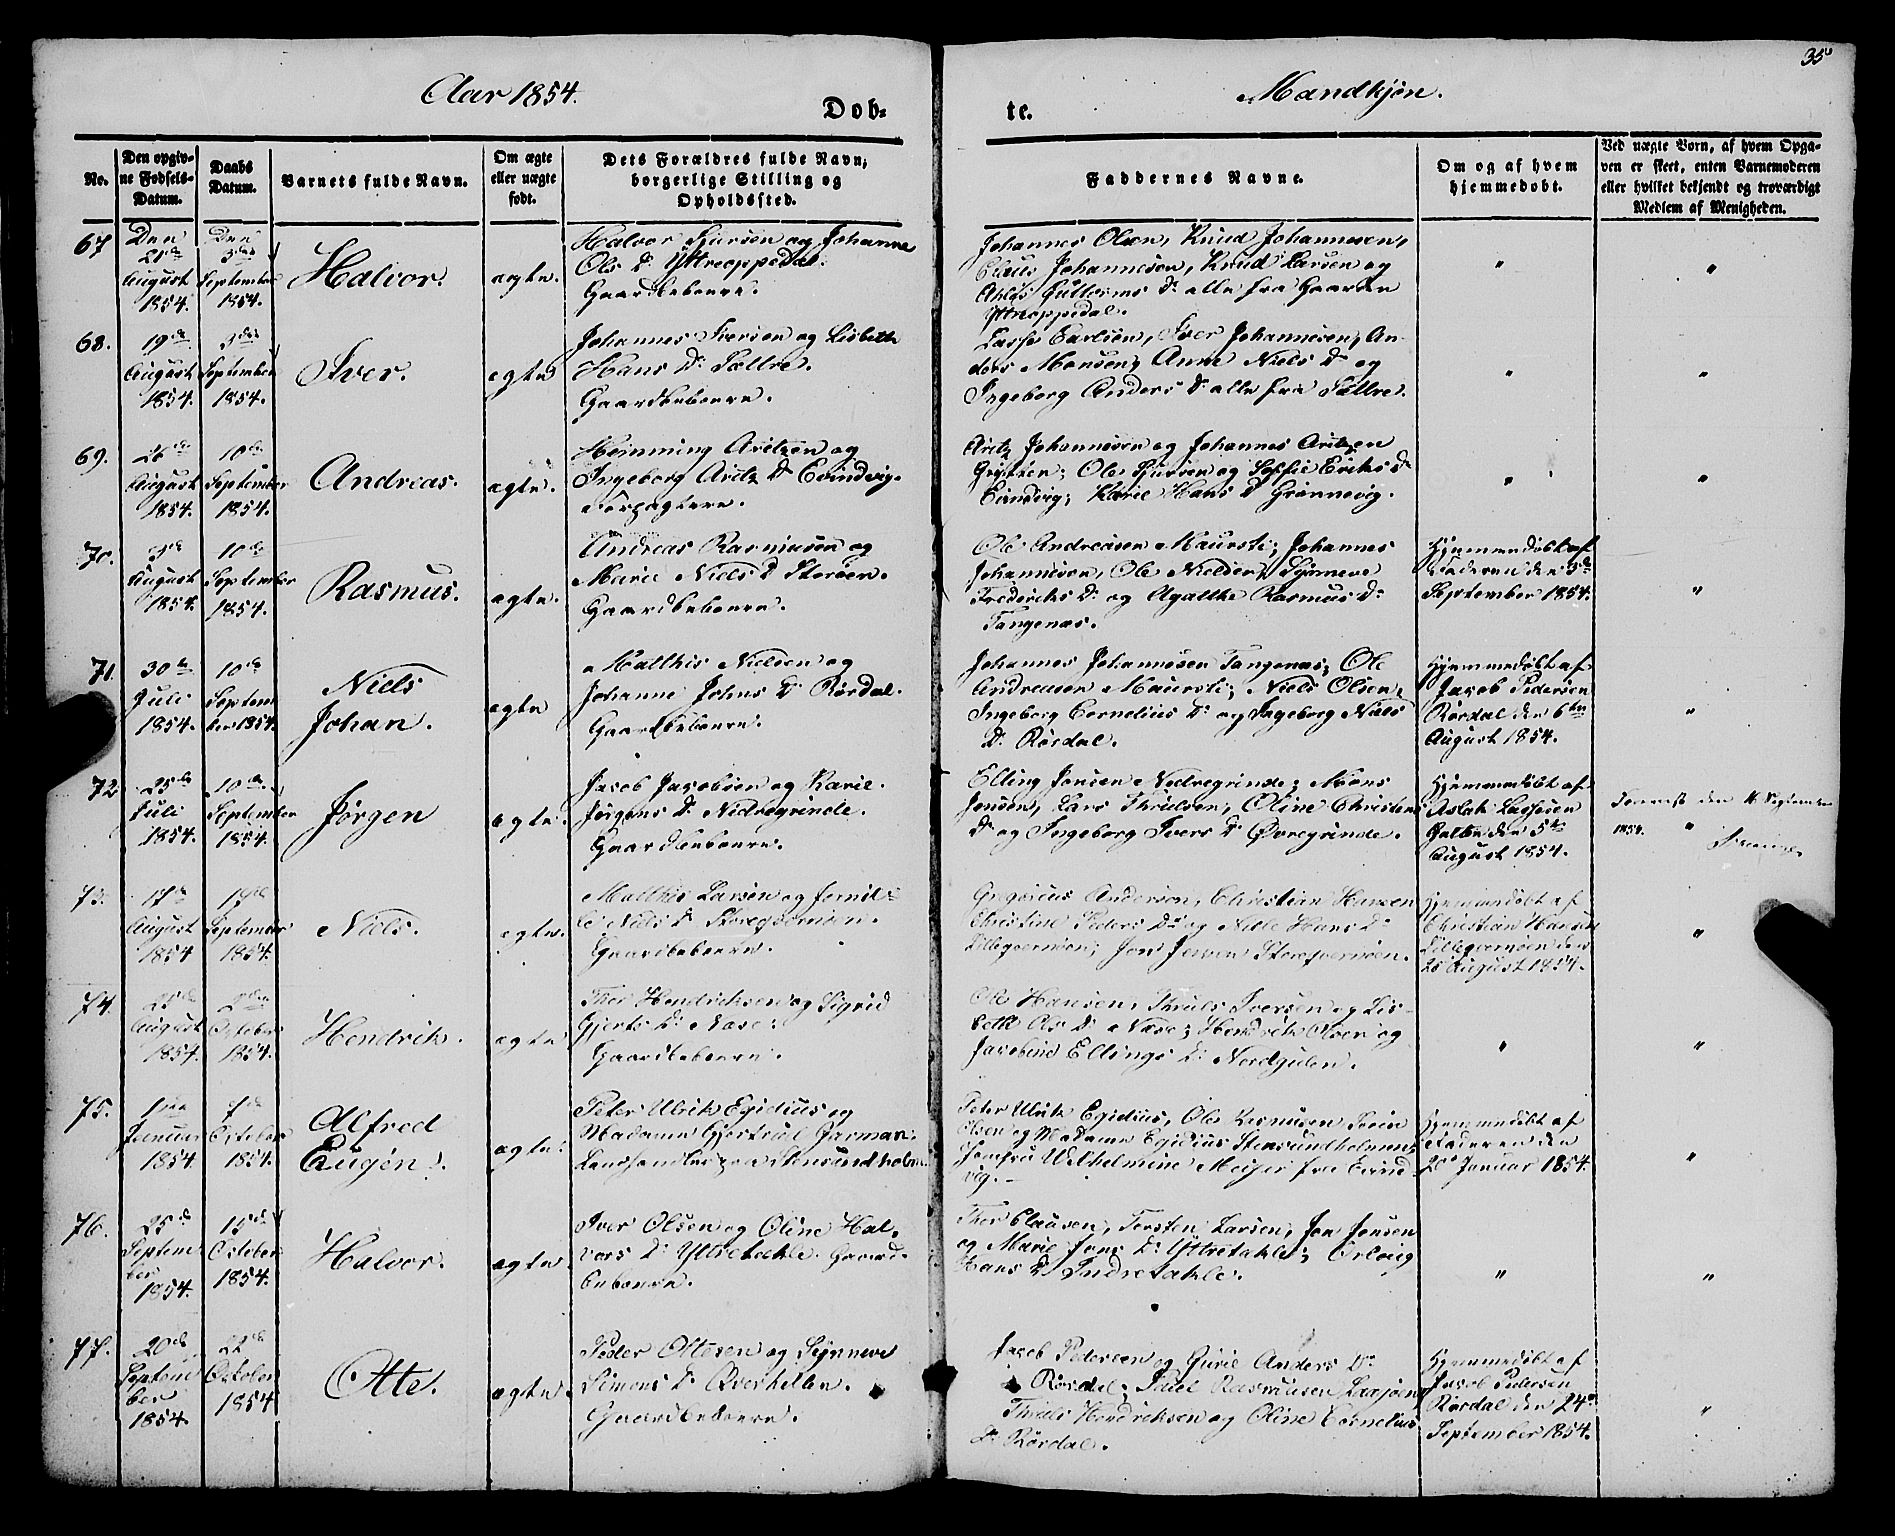 35
Aar 1854.
Mandkjön.
Døb-
te.
No.
Den opgiv-
ne Fødsels-
Datum.
Daabs
Datum.
Barnets fulde Navn.
Om ægte
eller uægte
født.
Dets Forældres fulde Navn,
borgerlige Stilling og
Opholdssted.
Faddernes Navne.
Om og af hvem
hjemmedøbt.
Ved uægte Børn, af hvem Opga-
ven er skeet, enten Barnemoderen
eller hvilket bekjendt og troværdigt
Medlem af Menigheden.
67
Den
21de
August
1854.
Den
3die
September
1854.
Halvor.
ægte.
Halvor Sjursen og Johanne
Ols D. Yttreoppedal.
Gaardbeboere.
Johannes Olsen, Knud Johannesen,
Claus Johannesen, Knud Larsen og
D. alle fra Gaarden
Yttreoppedal.
"
"
68.
19de
August
1854.
3die
September
1854.
Iver.
ægte
Johannes Iversen og Lisbeth
Hans D. Sættre.
Gaardbeboere.
Lasse Carlsen, Iver Johannesen, An-
ders Monsen, Anne Niels D. og
Ingeborg Anders D. alle fra Sættre.
"
"
69.
26de
August
1854.
10de
September
1854.
Andreas.
ægte.
Hemming Aritzen og
Ingeborg Aritz D. Evindvig.
Forpagtere.
Aritz Johannesen og Johannes Aritzen
Ole Sjursen og Sophie Eriks D.
Evindvig; Karie Hans D. Grønnevig.
"
"
70.
3de
August
1854.
10de
September
1854.
Rasmus.
ægte.
Andreas Rasmusen og
Marie Niels D. Storöen.
Gaardbeboere.
Ole Andreasen Maursti; Johannes
Johannesen, Ole Nielsen, Synneve
Frederiks D. og Agathe Rasmus D.
Tangenæs.
Hjemmedøbt af
Faderen den 3de
September 1854.
"
71.
30te
Juli
1854.
10de
Septem-
ber 1854.
Niels
Johan.
ægte
Matthis Nielsen og
Johanne Johns D. Rørdal.
Gaardbeboere.
Johannes Johannesen Tangenæs; Ole
Andreasen Maursti; Niels Olsen,
Ingeborg Cornelius D. og Ingeborg Niels
D. Rørdal.
Hjemmedøbt af
Jacob Pedersen
Rørdal den 6te
August 1854.
"
72
25de
Juli
1854.
10de
September
1854.
Jørgen
ægte.
Jacob Jacobsen og Karie
Jørgens D. Nedregrinde.
Gaardbeboere.
Elling Jonsen Nedregrinde; Mons
Jonsen, Lars Thrulsen, Oline Christens
D. og Ingeborg Ivers D. Øvregrinde.
Hjemmedøbt af
Aslak Lassesen
den 5te
August 1854.
den
1854.
"
73.
17de
August
1854
September
1854.
Niels.
ægte.
Matthis Larsen og
Niels D.
Gaardbeboere.
Andersen, Christian Hansen
Christine Peders D. og Hans D.
Jon Jensen
Hjemmedøbt af
Christian Hansen
den
August 1854.
"
74.
25de
August
1854.
October
1854.
Hendrik.
ægte
Thor Hendriksen og Sigrid
Gjerts D. Næse;
Gaardbeboere.
Ole Hansen, Thruls Iversen og Lis-
beth Ols D. Næse; Hendrik Olsen og
Jacobine Ellings D. Nordgulen.
"
"
75.
Januar
1854.
October
1854.
Alfred
Eugén.
ægte.
Peter Ulrik Egidius og
Madame Gjertrud Garman.
Landhandler paa Stensundholm.
Peter Ulrik Egidius, Ole Rasmusen
Olsen og Madame Egidius Stensundholmen;
Jomfru Wilhelmine Meyer fra Evind-
vig.
Hjemmedøbt af
Faderen den
Januar 1854.
"
76.
25de
Septem-
ber
1854.
15de
October
1854.
Halvor.
ægte.
Iver Olsen og Oline Hal-
vors D. Yttretakle. Gaard-
beboere.
Thor Clausen, Torsten Larsen, Jon Jonsen
og Marie Jons D. Yttretakle;
Hans D. Indretakle.
"
"
77.
20de
Septem-
ber
1854.
22de
October
1854
Otte.
ægte.
Peder Ottesen og Synneve
Simons D. Qverhellen.
Gaardbeboere.
Jacob Pedersen og Gurie Anders D.
Rørdal; Rasmusen
Thruls Hendriksen og Oline Cornelius
D. Rørdal.
Hjemmedøbt af
Jacob Pedersen
Rørdal den 24de
September 1854.
"